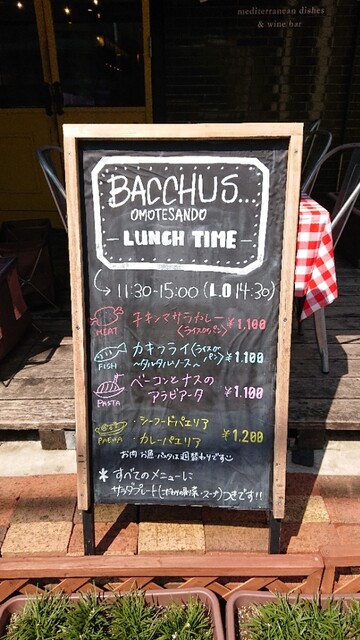 mediterranean dishes
& wine bar
BACCHUS...
OMOTESANDO
- LUNCH TIME -
11:30-15:00 (L.O 14:30)
MEAT
チキンマサラカレー
(ライスorパン) ¥1.100
FISH
カキフライ(ライスorパン)
~タルタルソース~ ¥1.100
PASTA
ベーコンとナスの
アラビアータ ¥1.100
PAELLA
・シーフードパエリア
・カレーパエリア ¥1.200
お肉お魚パスタは週替わりです
*すべてのメニューに
サラダプレート(
つきです!!